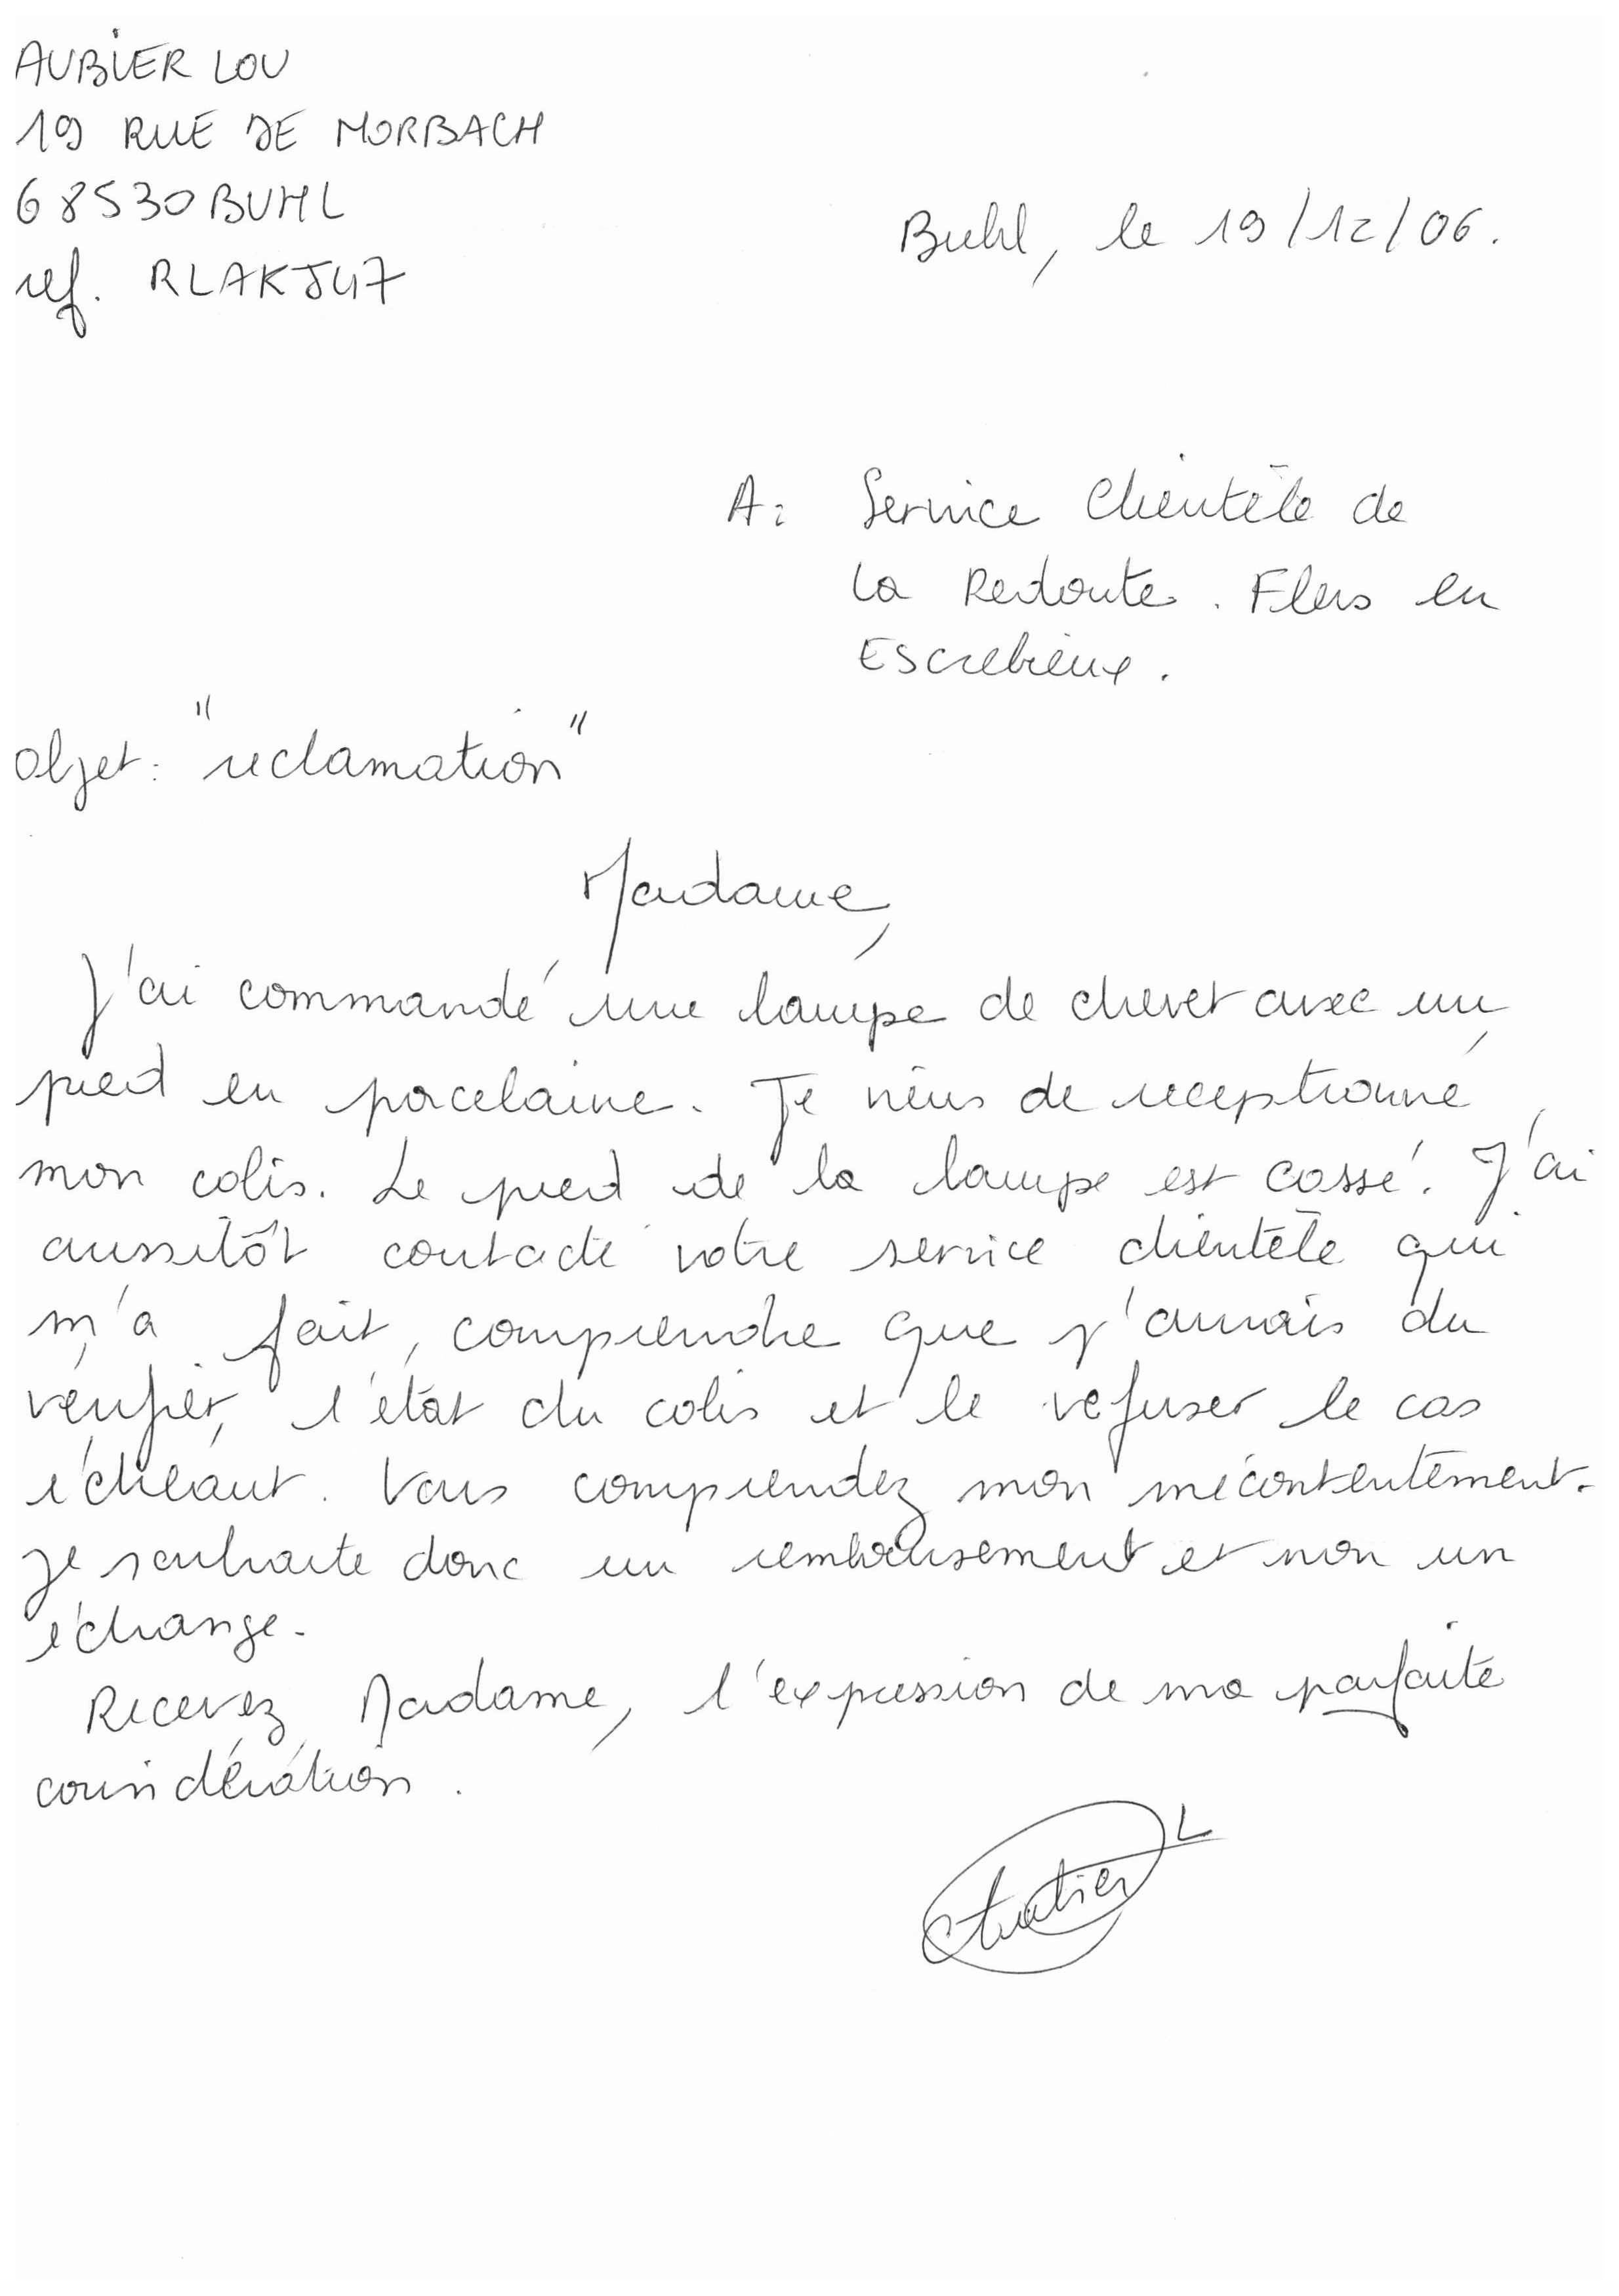 AUBIER LOU
19 RUE DE MORBACH
68530 BUHL
ref. RLAKJ47
Buhl, le 19/12/06.
A: Service Clientèle de
La Redoute. Flers en
Escrebieux.
Objet: "reclamation"
Madame,
J'ai commandé une lampe de chevet avec un
pied en porcelaine. Je viens de receptionné
mon colis. Le pied de la lampe est cassé. J'ai
aussitôt contacté votre service clientèle qui
m'a fait comprendre que j'aurais du
vérifier l'état du colis et le refuser le cas
échéant. Vous comprendez mon mécontentement.
Je souhaite donc un remboursement et non un
échange.
Recevez Madame, l'expression de ma parfaite
considération.
L